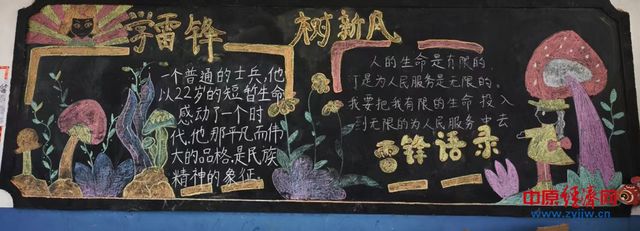 学雷锋 树新风
一个普通的士兵,他
以22岁的短暂生命
感动了一个时
代,他那平凡而伟
大的品格,是民族
精神的象征。
人的生命是有限的,
可是为人民服务是无限的。
我要把我有限的生命投入
到无限的为人民服务中去
雷锋语录
中原经济网
www.zyjjw.cn